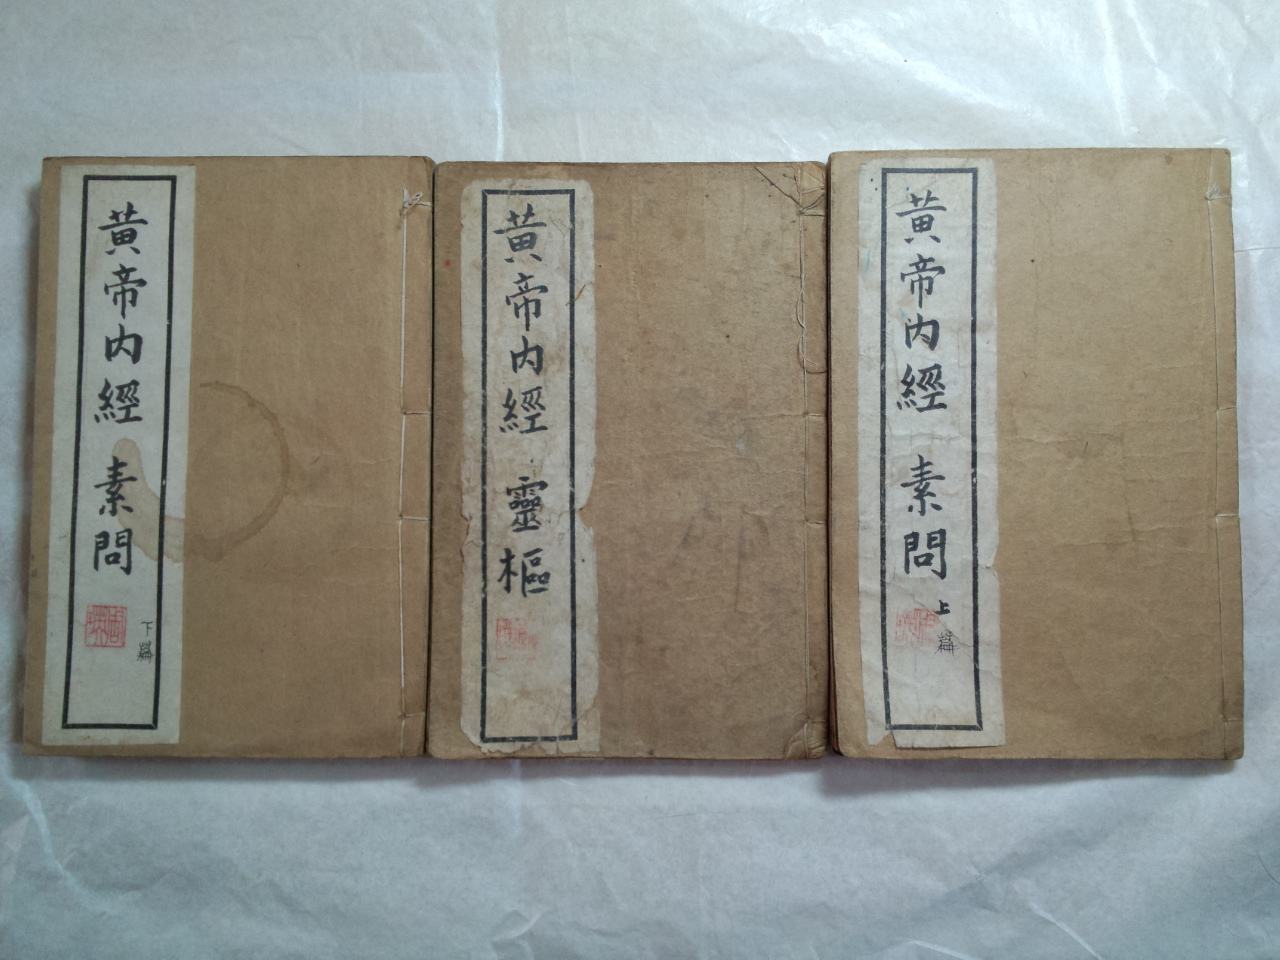 黃帝內經 素問
上篇
黃帝內經 靈樞
黃帝內經 素問
下篇